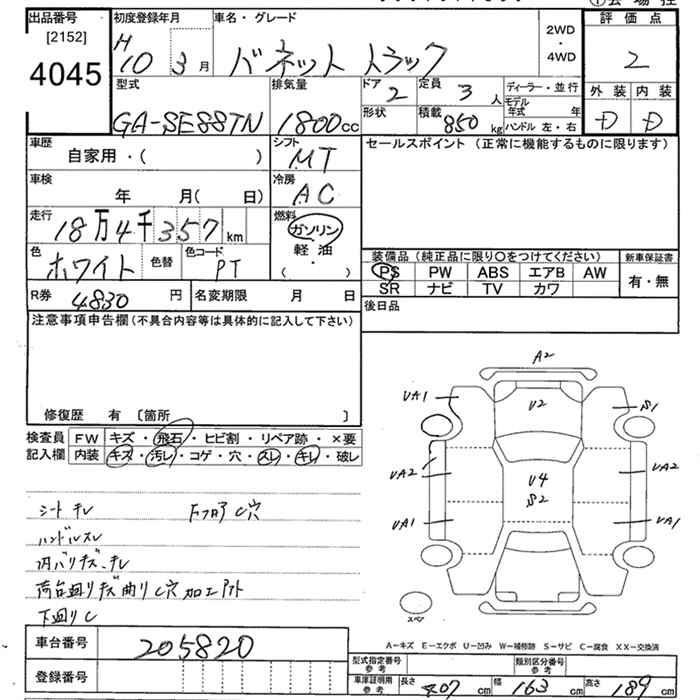 出品番号 [2152] 4045
初度登録年月 H10 3月
車名・グレード バネット トラック
2WD・4WD
評価点 2
外装 D 内装 D
型式 GA-SE88TN
排気量 1800cc
ドア 2
形状
定員 3人
積載 850kg
ディーラー・並行
モデル年式 年
ハンドル 左・右
車歴 自家用・( )
シフト MT
セールスポイント (正常に機能するものに限ります)
車検 年 月( 日)
冷房 AC
走行 18万4千357km
燃料 ガソリン 軽油 ( ・ )
色 ホワイト 色替
色コード PT
装備品 (純正品に限り○をつけてください)
新車保証書 有・無
PS PW ABS エアB AW
SR ナビ TV カワ
R券 4830円
名変期限 月 日
後日品
注意事項申告欄 (不具合内容等は具体的に記入して下さい)
修復歴 有 〔箇所 〕
検査員記入欄
FW キズ・飛石・ヒビ割・リペア跡・×要
内装 キズ・汚レ・コゲ・穴・スレ・キレ・破レ
A2
UA1 U2 S1
UA2 U4 S2 UA2
UA1 UA1
スペア
シート キレ
ハンドルスレ
内バリキズ、キレ
荷台廻りキズ曲り C穴 加工アト
下廻りC
A－キズ E－エクボ U－凹み W－補修跡 S－サビ C－腐食 XX－交換済
車台番号 205820
登録番号
型式指定番号 参考
類別区分番号 参考
車庫証明用 参考 長さ 407cm 幅 163cm 高さ 189cm